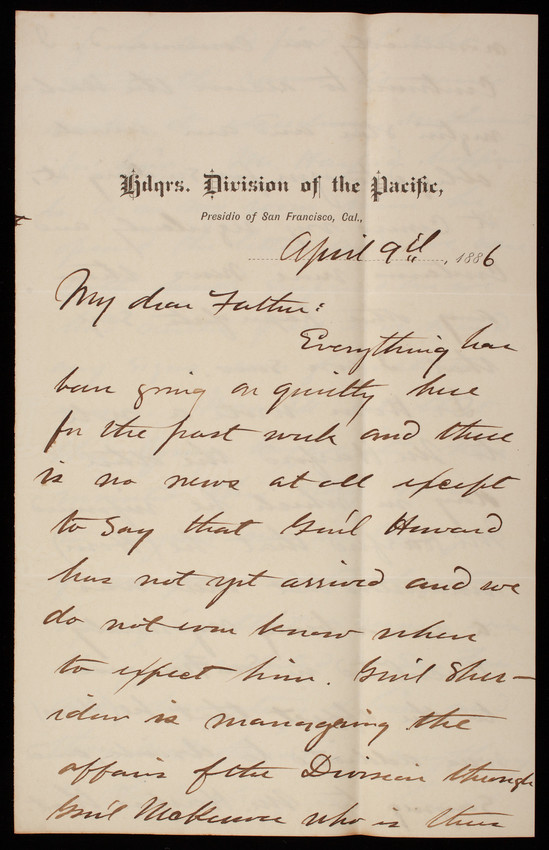 Hdqrs. Division of the Pacific,
Presidio of San Francisco, Cal.,
April 9th, 1886
My dear Father:
Everything has
been going on quietly here
for the past week and there
is no news at all except
to say that Gen'l Howard
has not yet arrived and we
do not even know when
to expect him. Gen'l Sher-
idan is managing the
affairs of the Division through
Gen'l McKeever who is then